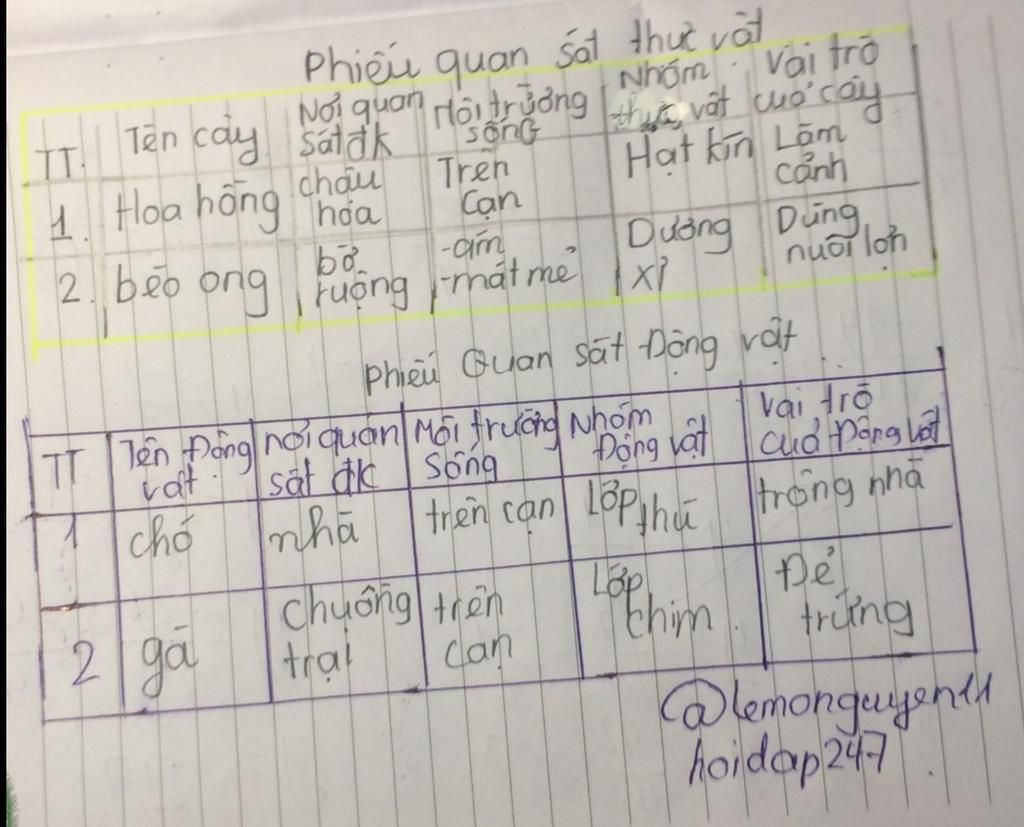 Phiếu quan sát thực vật
TT. Tên cây Nơi quan sát đk Môi trường sống Nhóm thực vật Vai trò của cây
1. Hoa hồng chậu hoa Trên Cạn Hạt kín Làm cảnh
2. bèo ong bờ ruộng -ẩm -mát mẻ Dương xỉ Dùng nuôi lợn
Phiếu Quan sát Động vật
TT Tên Động vật nơi quan sát đk Môi trường sống Nhóm Động vật Vai trò của Động vật
1 chó nhà trên cạn Lớp thú trông nhà
2 gà chuồng trại trên cạn Lớp chim Đẻ trứng
@lemonguyen11
hoidap247